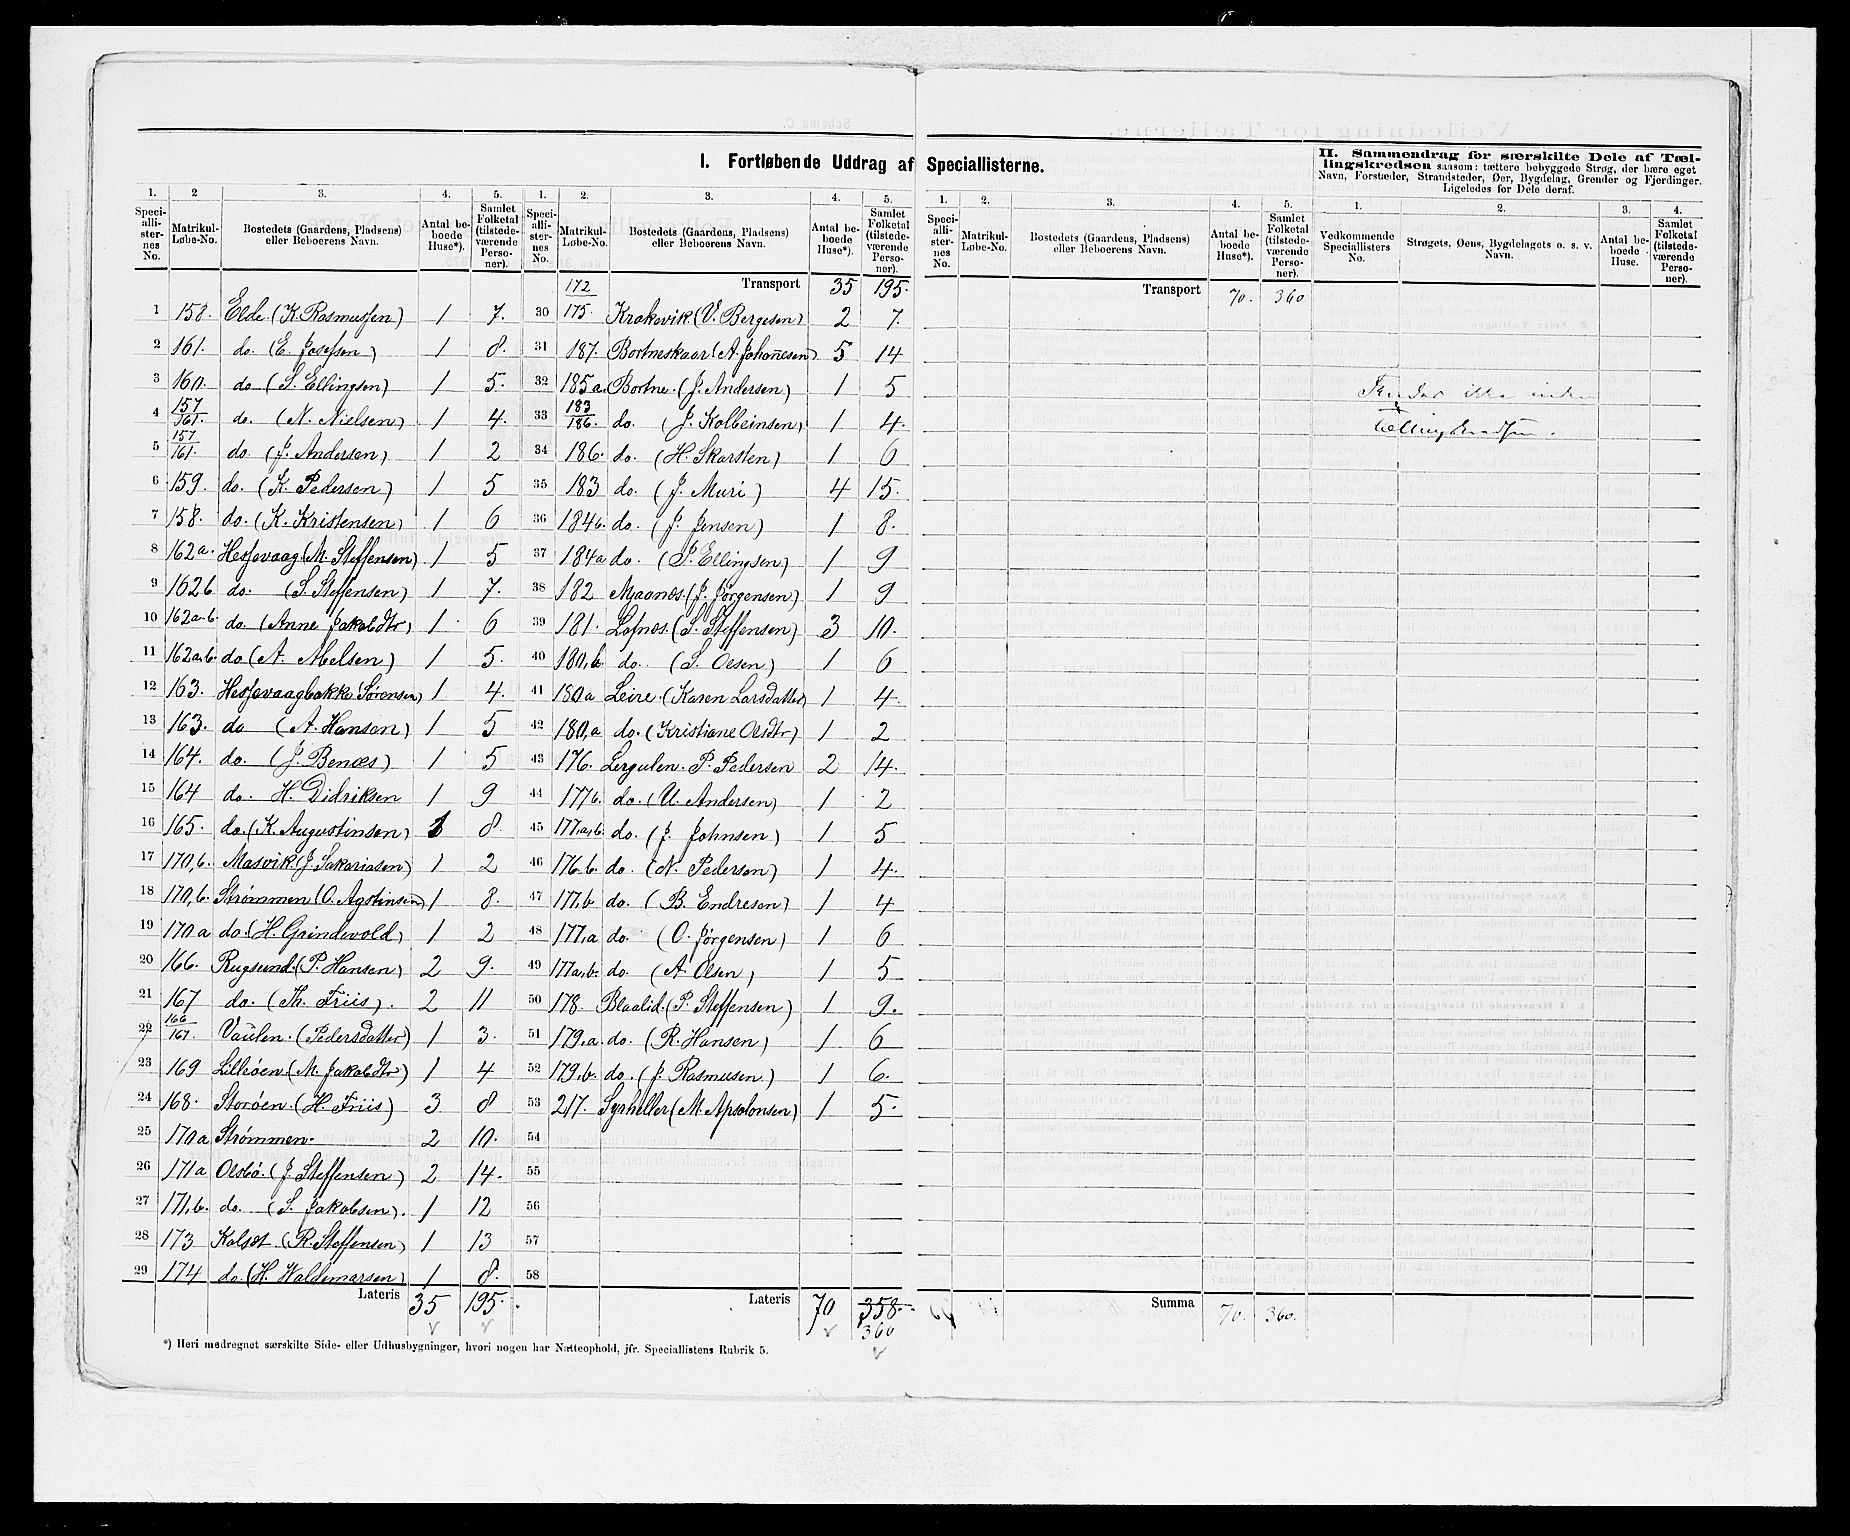 I. Fortløbende Uddrag af Speciallisterne.
II. Sammendrag for særskilte Dele af Tællingskredsen saasom: tættere bebyggede Strøg, der bære eget
Navn, Forstæder, Strandsteder, Øer, Bygdelag, Grender og Fjerdinger.
Ligeledes for Dele deraf.
1. 2 3. 4. 5.
Speciallisternes No. Matrikul-Løbe-No. Bostedets (Gaardens, Pladsens) eller Beboerens Navn. Antal beboede Huse*). Samlet Folketal (tilstedeværende Personer).
1 158. Elde (K. Rasmussen) 1 7.
2 161. do. (E. Josefsen) 1 8.
3 160. do (S. Ellingsen) 1 5.
4 157/161. do. (N. Nielsen) 1 4.
5 157/161. do (J. Andersen) 1 2
6 159. do. (K. Pedersen) 1 5
7 158. do. (K. Kristensen) 1 6
8 162a. Hessevaag (M. Steffensen) 1 5
9 162b do. (S. Steffensen) 1 7.
10 162a.b. do. (Anne Jakobdtr) 1 6
11 162a.b. do (A. Abelsen) 1 5.
12 163. Hessevaagbakke (Sørensen) 1 4.
13 163. do (A. Hansen) 1 5
14 164. do. (J. Benæs) 1 5
15 164 do. H. Didriksen 1 9
16 165. do. (K. Augustinsen) 1 8.
17 170,b. Masvik (J. Sakariasen) 1 2
18 170,b. Strømmen (O. Agstinsen) 1 8.
19 170a do. (H. Grindevold) 1 2
20 166. Rugsund. (P. Hansen) 2 9.
21 167 do. (Th. Friis). 2 11
22 166/167. Vaulen. (Pedersdatter) 1 3.
23 169 Lilleøen. (M. Jakobdtr) 1 4
24 168. Storøen. (H. Friis) 3 8
25 170a Strømmen. 2 10.
26 171a Olsbø. (J Steffensen) 2 14.
27 171,b. do. (S. Jakobsen). 1 12
28 173 Kalsæt (R. Steffensen) 1 13
29 174 do. (H. Waldemarsen) 1 8.
Lateris 35 195.
1. 2. 3. 4. 5.
Speciallisternes No. Matrikul-Løbe-No. Bostedets (Gaardens, Pladsens) eller Beboerens Navn. Antal beboede Huse*). Samlet Folketal (tilstedeværende Personer).
Transport 35 195.
30 172/175. Krakevik (V. Bergesen) 2 7.
31 187. Bortneskaar (A. Johanesen) 5 14
32 185a. Bortne. (J. Andersen) 1 5
33 183/186. do. (J. Kolbeinsen) 1 4.
34 186. do. (H. Skarsten) 1 6
35 183 do. (J. Muri) 4 15.
36 184b. do. (J. Jensen) 1 8.
37 184a do. (P. Ellingsen) 1 9
38 182 Maanæs. (J. Jørgensen) 1 9
39 181. Lofnæs. (S. Steffensen) 3 10.
40 180,b do. (S. Olsen) 1 6
41 180a Leire. (Karen Larsdatter) 1 4.
42 180,a do. (Kristiane Olsdtr) 1 2
43 176. Lergulen. P. Pedersen 2 14.
44 177b. do. (U. Andersen) 1 2
45 177,a,b. do. (J. Johnsen) 1 5
46 176.b. do. (N. Pedersen) 1 4.
47 177,b do. (B. Endresen) 1 4
48 177,a do. (O. Jørgensen) 1 6
49 177a,b. do (A. Olsen) 1 5
50 178. Blaalid. (P. Steffensen) 1 9.
51 179,a. do. (R. Hansen) 1 6
52 179,b. do. (J. Rasmusen) 1 6.
53 217. Syrheller (M. Apsolonsen) 1 5.
54
55
56
57
58
Lateris 70 358.
360
1. 2. 3. 4. 5.
Speciallisternes No. Matrikul-Løbe-No. Bostedets (Gaardens, Pladsens) eller Beboerens Navn. Antal beboede Huse*). Samlet Folketal (tilstedeværende Personer).
Transport 70. 360
Summa 70. 360.
1. 2. 3. 4.
Vedkommende Speciallisters No. Strøgets, Øens, Bygdelagets o. s. v. Navn. Antal beboede Huse. Samlet Folketal (tilstedeværende Personer).
ikke
*) Heri medregnet særskilte Side- eller Udhusbygninger, hvori nogen har Natteophold, jfr. Speciallistens Rubrik 5.